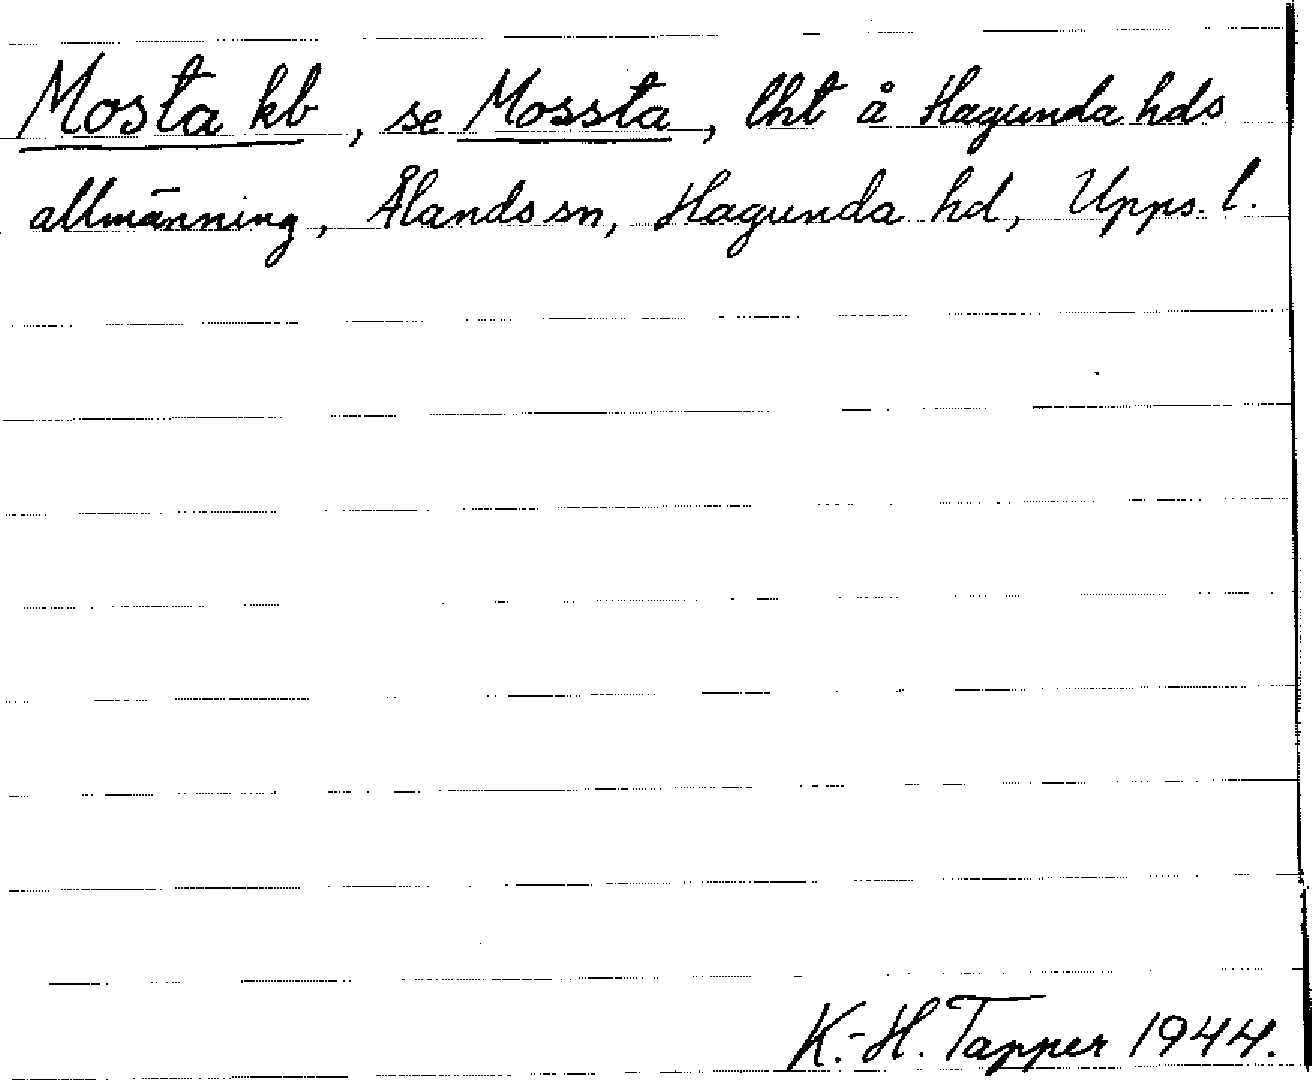 Mosta kb, se Mossta, lht å Hagunda hds
allmänning, Ålands sn, Hagunda hd, Upps. l.
K.-H. Tapper 1944.